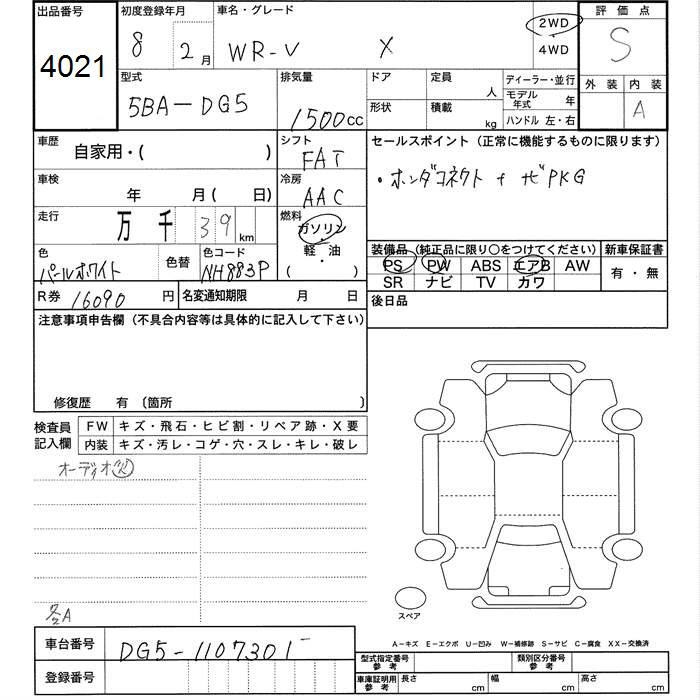 出品番号 初度登録年月 車名・グレード 評価点
4021 8 2月 WR-V X 2WD S
4WD
型式 排気量 ドア 定員 人 ディーラー・並行 外装 内装
5BA-DG5 1500cc 形状 積載 kg モデル年式 年 A
ハンドル 左・右
車歴 自家用・( ) シフト FAT セールスポイント(正常に機能するものに限ります)
車検 年 月( 日) 冷房 AAC ・ホンダコネクト + ナビPKG
走行 万 千 39 km 燃料 ガソリン
軽・油
( )
色 パールホワイト 色替 色コード NH883P 装備品(純正品に限り○をつけてください) 新車保証書
PS PW ABS エアB AW 有・無
SR ナビ TV カワ
R券 16090 円 名変通知期限 月 日 後日品
注意事項申告欄(不具合内容等は具体的に記入して下さい)
修復歴 有 (箇所 )
検査員 FW キズ・飛石・ヒビ割・リペア跡・X要
記入欄 内装 キズ・汚レ・コゲ・穴・スレ・キレ・破レ
オーディオ欠
スペア
各A
A-キズ E-エクボ U-凹み W-補修跡 S-サビ C-腐食 XX-交換済
車台番号 DG5-1107301
登録番号
型式指定番号 参考 類別区分番号 参考
車庫証明用 参考 長さ cm 幅 cm 高さ cm